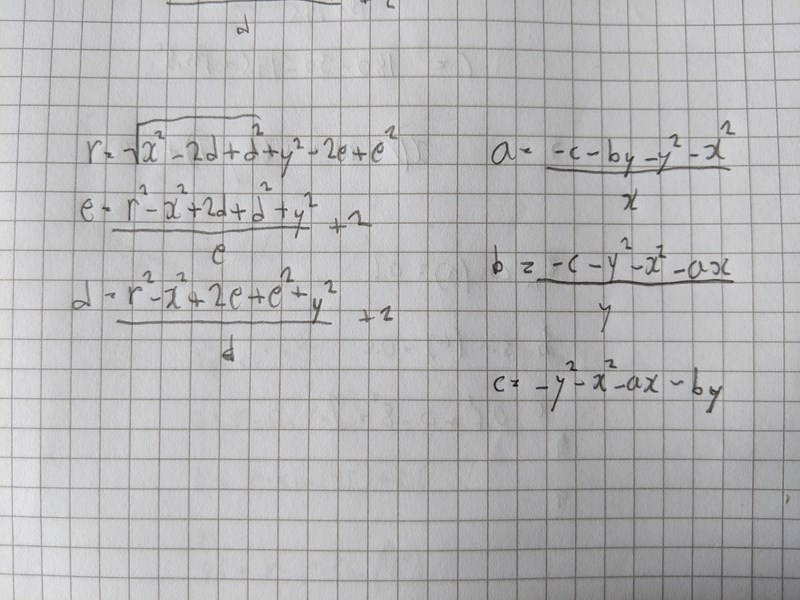 d
r = √x² - 2d + d² + y² - 2e + e²
e = (r² - x² + 2d + d² + y²) / e + 2
d = (r² - x² + 2e + e² + y²) / d + 2
a = (-c - by - y² - x²) / x
b = (-c - y² - x² - ax) / y
c = -y² - x² - ax - by